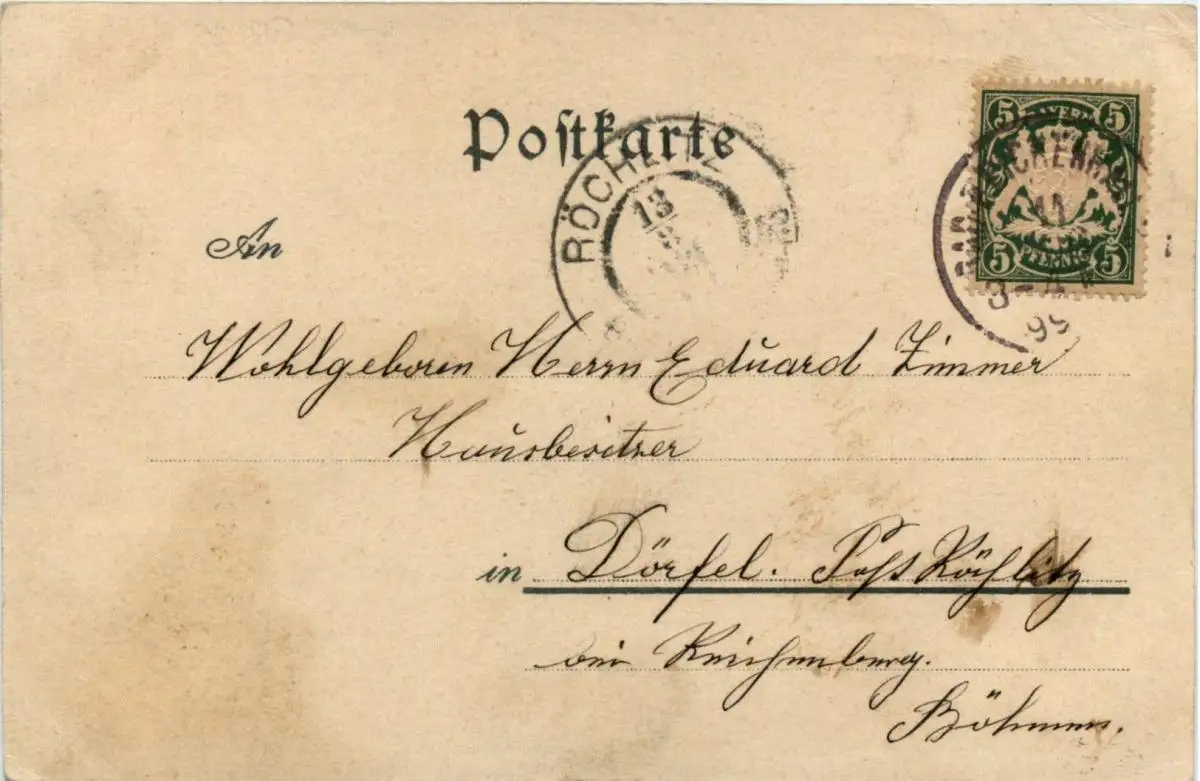 Postkarte
5 BAYERN 5
5 PFENNIG 5
RÖCHLITZ
13
3-4
99
An
Wohlgeboren Herrn Eduard Zimmer
Hausbesitzer
in Dörfel. Post Röchlitz
bei Reichenberg.
Böhmen.